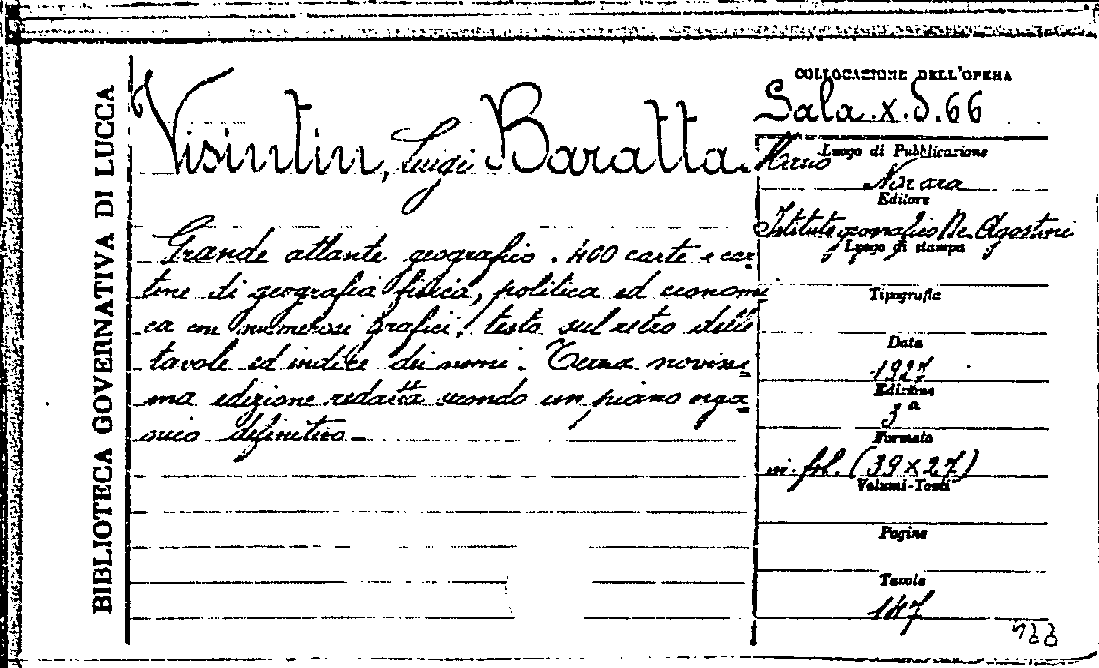 BIBLIOTECA GOVERNATIVA DI LUCCA
Visintin, Luigi Baratta Mario
Grande atlante geografico. 400 carte e car
tine di geografia fisica, politica ed economi
ca con numerosi grafici, testo sul retro delle
tavole ed indice dei nomi. Terza novissi=
ma edizione redatta secondo un piano orga=
nico definitivo.
COLLOCAZIONE DELL'OPERA
Sala.X.S.66
Luogo di Pubblicazione
Novara
Editore
Istituto geografico De Agostini
Luogo di stampa
Tipografia
Data
1927
Edizione
3ª
Formato
in-fol. (39x27)
Volumi-Tomi
Pagine
Tavole
147